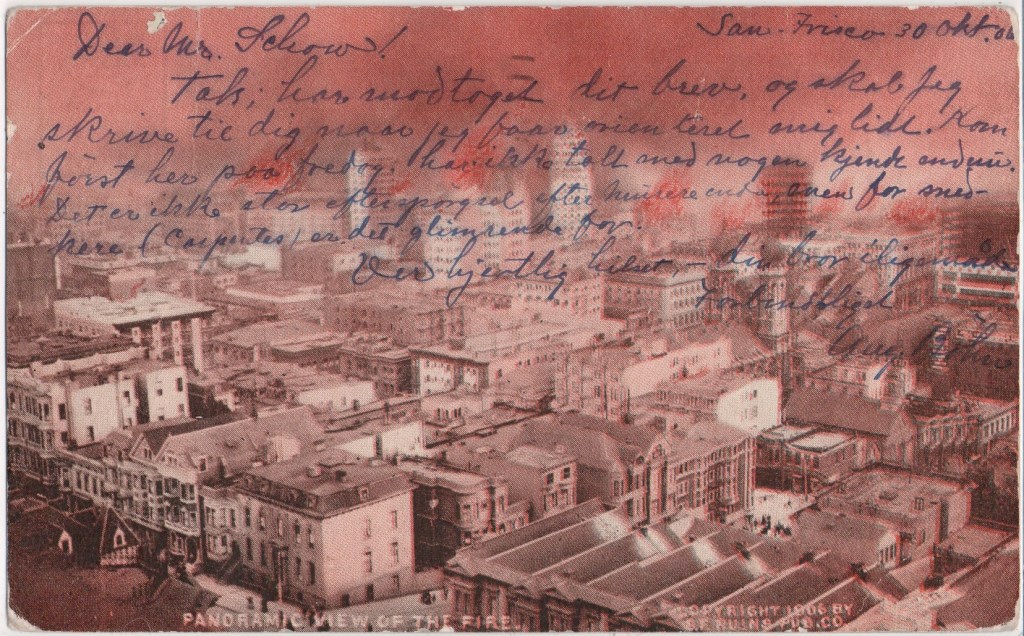 San-Frisco 30 Okt. 06
Dear Mr. Schow!
Tak, har modtoget dit brev, og skal jeg
skrive til dig naar jeg faar orienteret mig lidt. Kom
först her paa fredag. har ikke talt med nogen kjende endnu.
Det er ikke stor efterspørgsel efter murere endnu, men for sned-
kere (Carputes) er det glimrende for.
Ver hjertlig hilset, din bror iligemåde
Forbindtligst
Aug
PANORAMIC VIEW OF THE FIRE.
COPYRIGHT 1906 BY
S.F. RUINS PUB. CO.